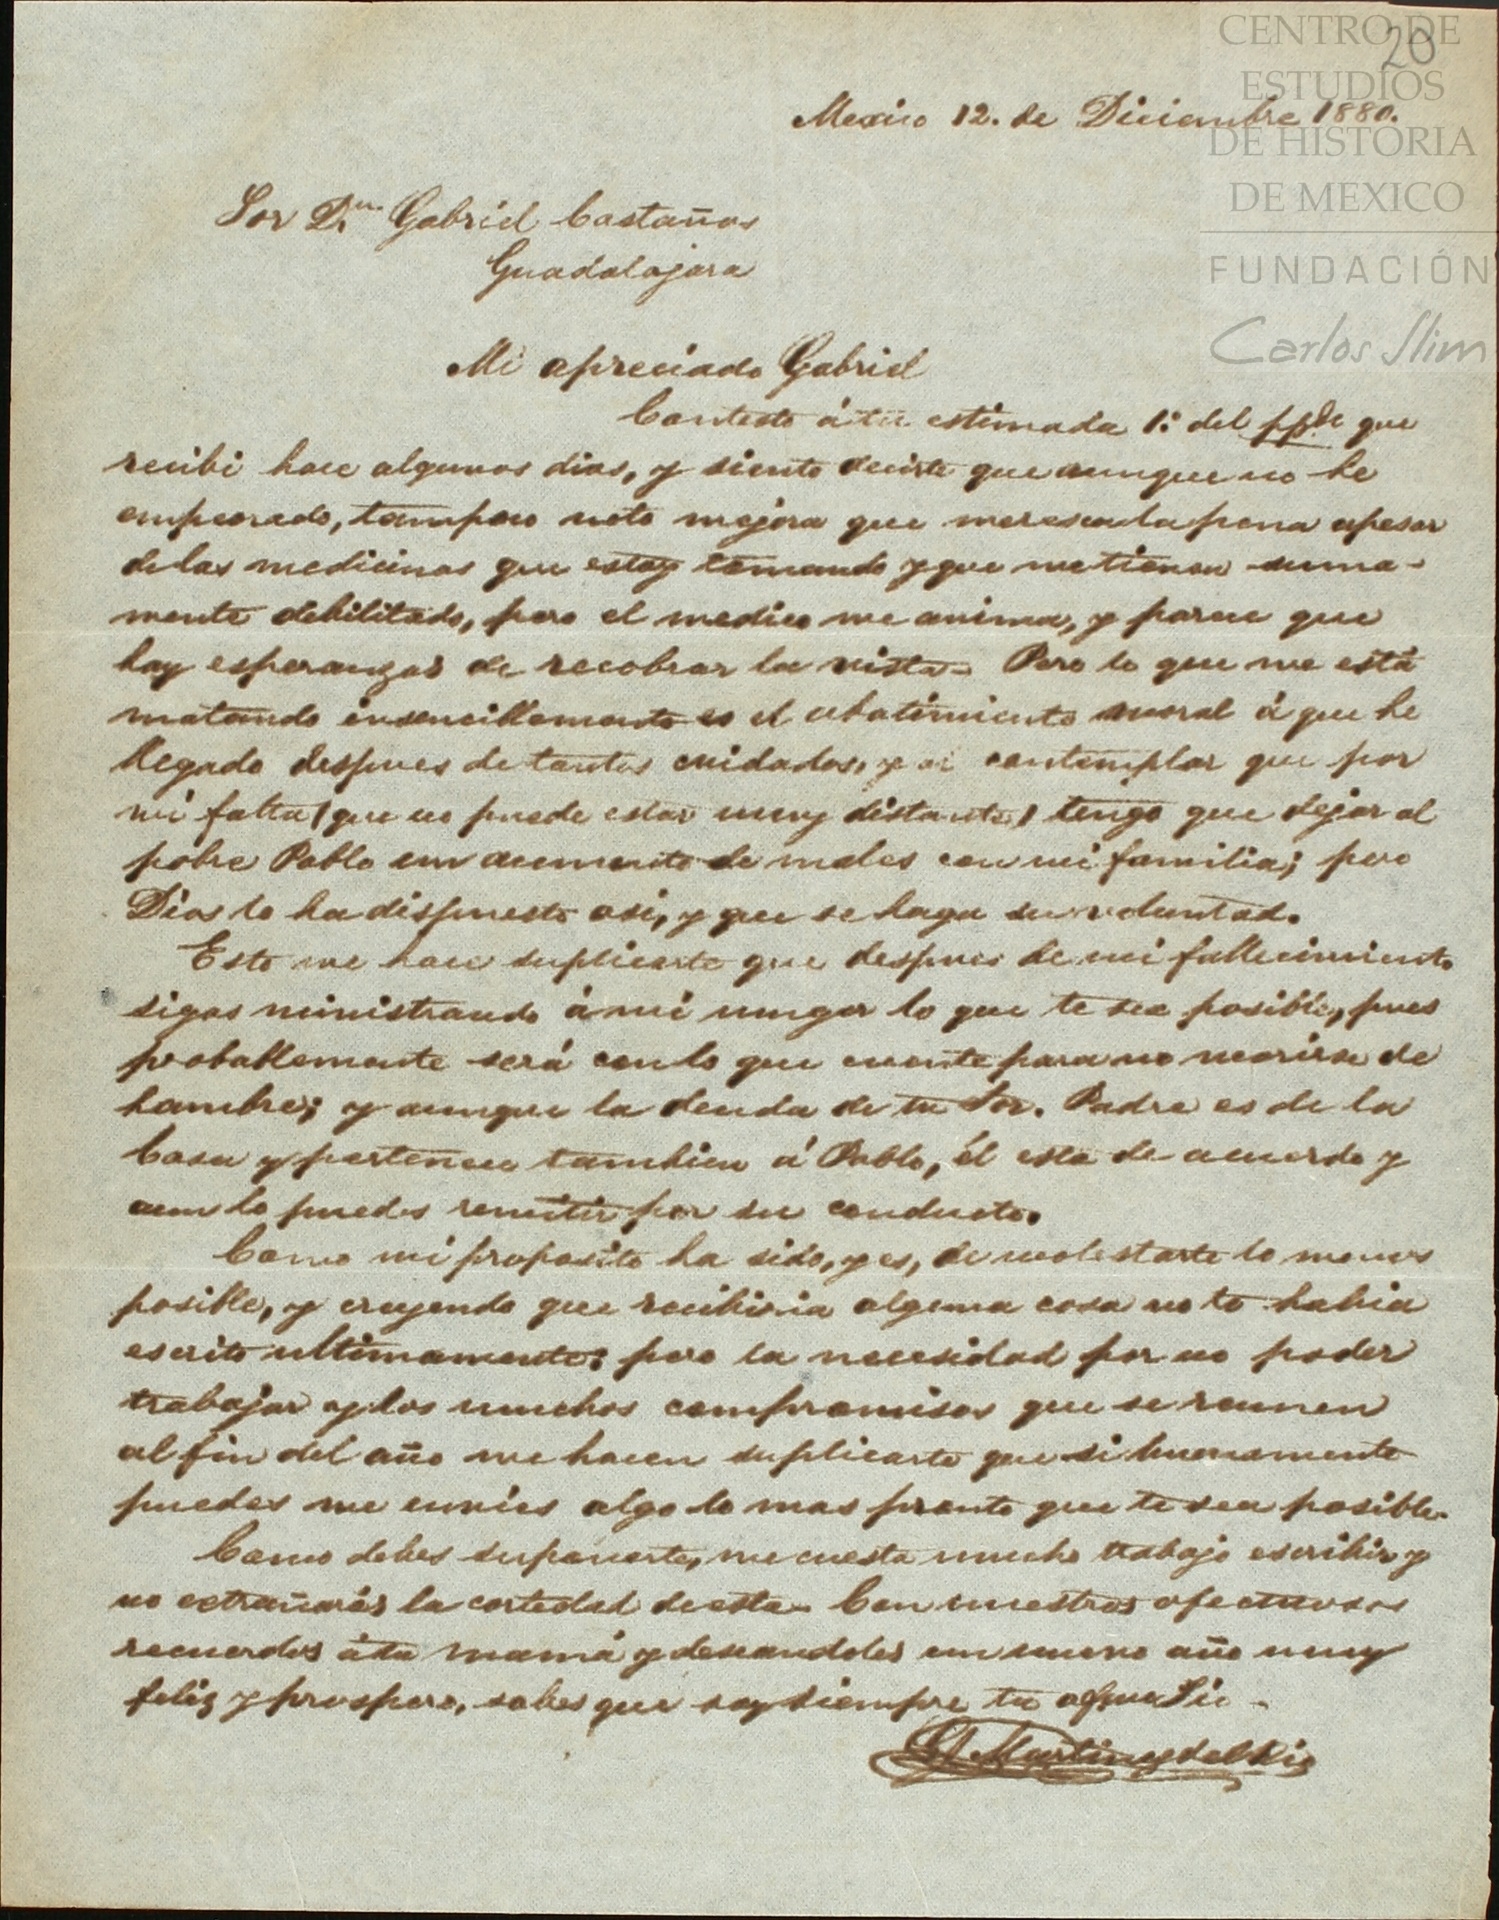 CENTRO DE
ESTUDIOS
DE HISTORIA
DE MEXICO
FUNDACIÓN
Carlos Slim
20
Mexico 12. de Diciembre 1880.
Sor Dn. Gabriel Castaños
Guadalajara
Mi apreciado Gabriel
Contesto á tu estimada 1º del ppdo que
recibi hace algunos dias, y siento decirte que aunque no he
empeorado, tampoco noto mejora que meresca la pena apesar
de las medicinas que estoy tomando y que me tienen suma-
mente debilitado, pero el medico me anima, y parece que
hay esperanzas de recobrar la vista. Pero lo que me está
matando insenciblemente es el abatimiento moral á que he
llegado despues de tantos cuidados, y al contemplar que por
mi falta (que no puede estar muy distante) tengo que dejar al
pobre Pablo un aumento de males con mi familia; pero
Dios lo ha dispuesto asi, y que se haga su voluntad.
Esto me hace suplicarte que despues de mi fallecimiento
sigas ministrando á mi muger lo que te sea posible, pues
probablemente será con lo que cuente para no morirse de
hambre; y aunque la deuda de tu Sor. Padre es de la
Casa y pertenece tambien á Pablo, él esta de acuerdo y
aun lo puedes remitir por su conducto.
Como mi proposito ha sido, y es, de molestarte lo menos
posible, y creyendo que recibiria alguna cosa no te habia
escrito ultimamente; pero la necesidad por no poder
trabajar y los muchos compromisos que se reunen
al fin del año me hacen suplicarte que si buenamente
puedes me envies algo lo mas pronto que te sea posible.
Como debes suponerte, me cuesta mucho trabajo escribir y
no extrañarás la cortedad de esta. Con nuestros afectuosos
recuerdos á tu mamá y deseandoles un nuevo año muy
feliz y prospero, sabes que soy siempre tu
Martinez del Rio